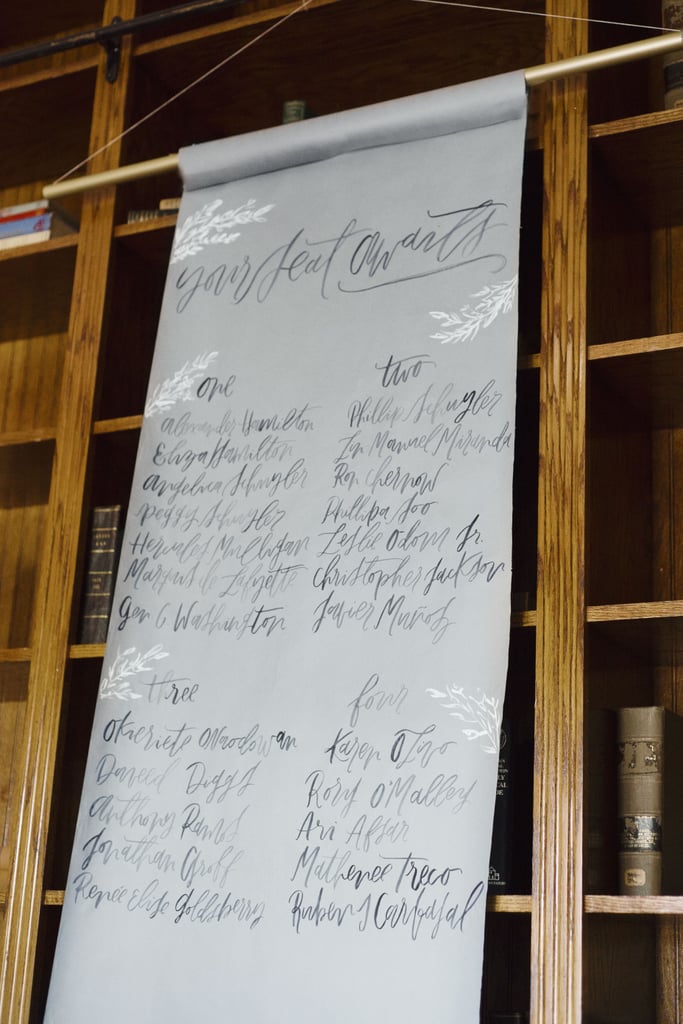 your seat awaits
one
Alexander Hamilton
Eliza Hamilton
Angelica Schuyler
Peggy Schuyler
Hercules Mulligan
Marquis de Lafyette
Gen G Washington
two
Phillip Schuyler
Lin Manuel Miranda
Ron Chernow
Phillipa Soo
Leslie Odom Jr.
Christopher Jackson
Javier Muñoz
three
Okeriete Onaodowan
Daveed Diggs
Anthony Ramos
Jonathan Groff
Renée Elise Goldsberry
four
Karen Olivo
Rory O'Malley
Ari Afsar
Mathenee Treco
Ruben J Carbajal